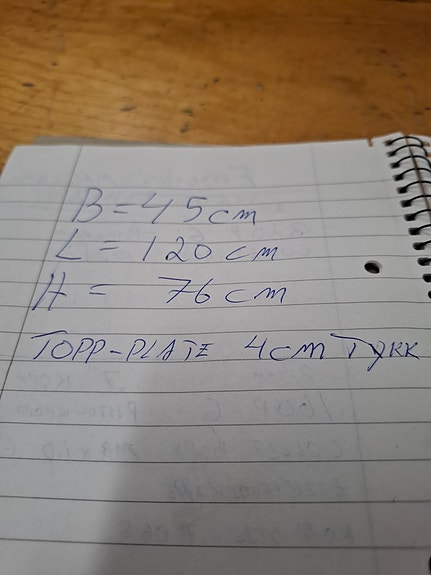 B = 45 cm
L = 120 cm
H = 76 cm
TOPP-PLATE 4 cm TYKK